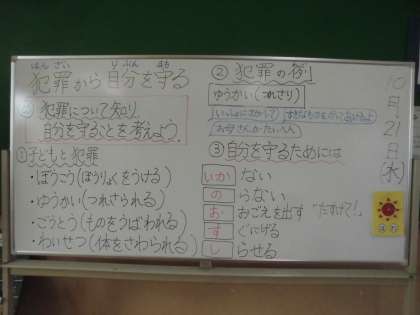 はんざい じぶん まも
犯罪から自分を守る
犯罪について知り、
自分を守ることを考えよう。
①子どもと犯罪
・ぼうこう(ぼうりょくをうける)
・ゆうかい(つれさられる)
・ごうとう(ものをうばわれる)
・わいせつ(体をさわられる)
②犯罪の例
ゆうかい(つれさり)
いっしょにさがして
すきなものをかってあげるよ
お母さんがたいへん
③自分を守るためには
いかない
のらない
おおごえを出す "たすけて!"
すぐにげる
しらせる
10月21日(水)